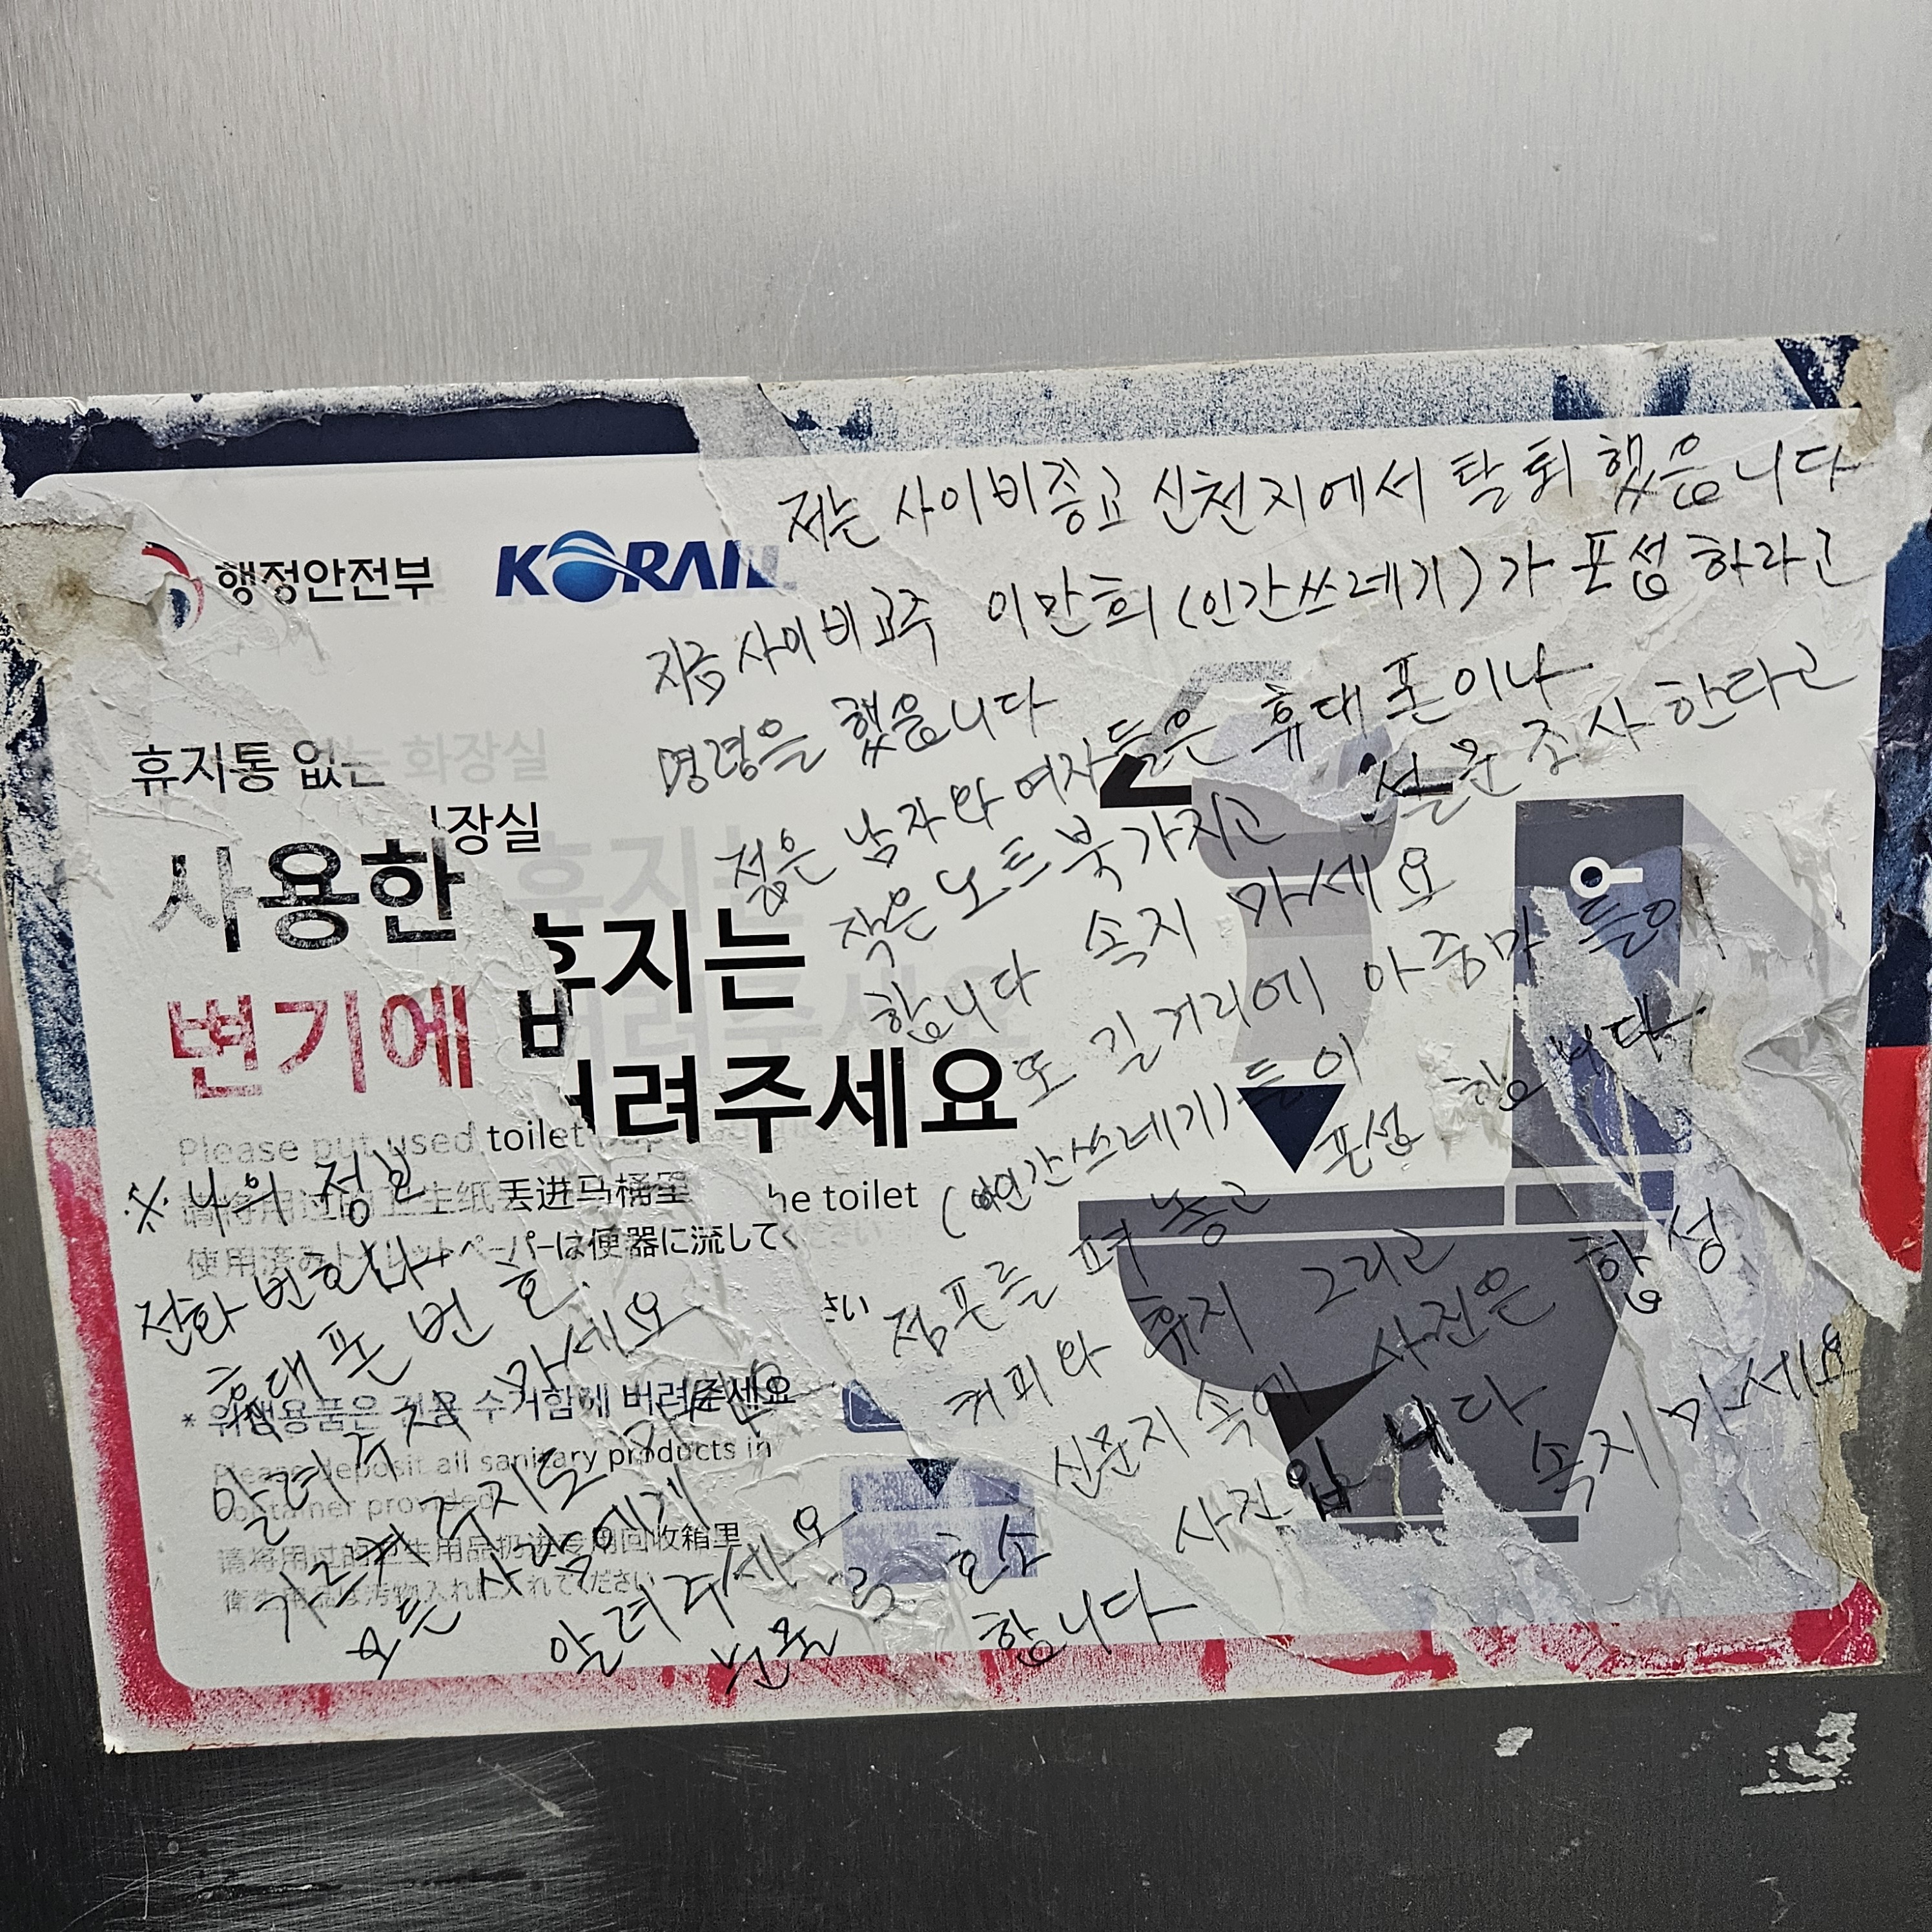 행정안전부 KORAIL
휴지통 없는 화장실
장실
사용한 휴지는
변기에
버려주세요
Please put used toilet
he toilet
丢进马桶里
使用済みトイレットペーパーは便器に流してく
さい
* 위생용품은 전용 수거함에 버려주세요
Please deposit all sanitary products in
container provided
请将用过的卫生用品扔进专用回收箱里
저는 사이비종교 신천지에서 탈퇴 했읍니다
지금 사이비 교주 이만희 (인간쓰레기)가 포섭 하라고
명령을 했읍니다
젊은 남자와 여자들은 휴대폰이나
작은 노트북 가지고 설문 조사 한다고
합니다 속지 마세요
또 길거리에 아줌마 들이
(인간쓰레기)들이 포섭 합니다.
점포를 펴 놓고
커피와 휴지 그리고
신문지 속에 사진은 합성
사진 입니다 속지 마세요
※ 나의 정보
전화 번호나
휴대폰 번호
알려주지 마세요
가르켜 주지도
모든 사람에게
알려주세요
눈물로 호소
합니다